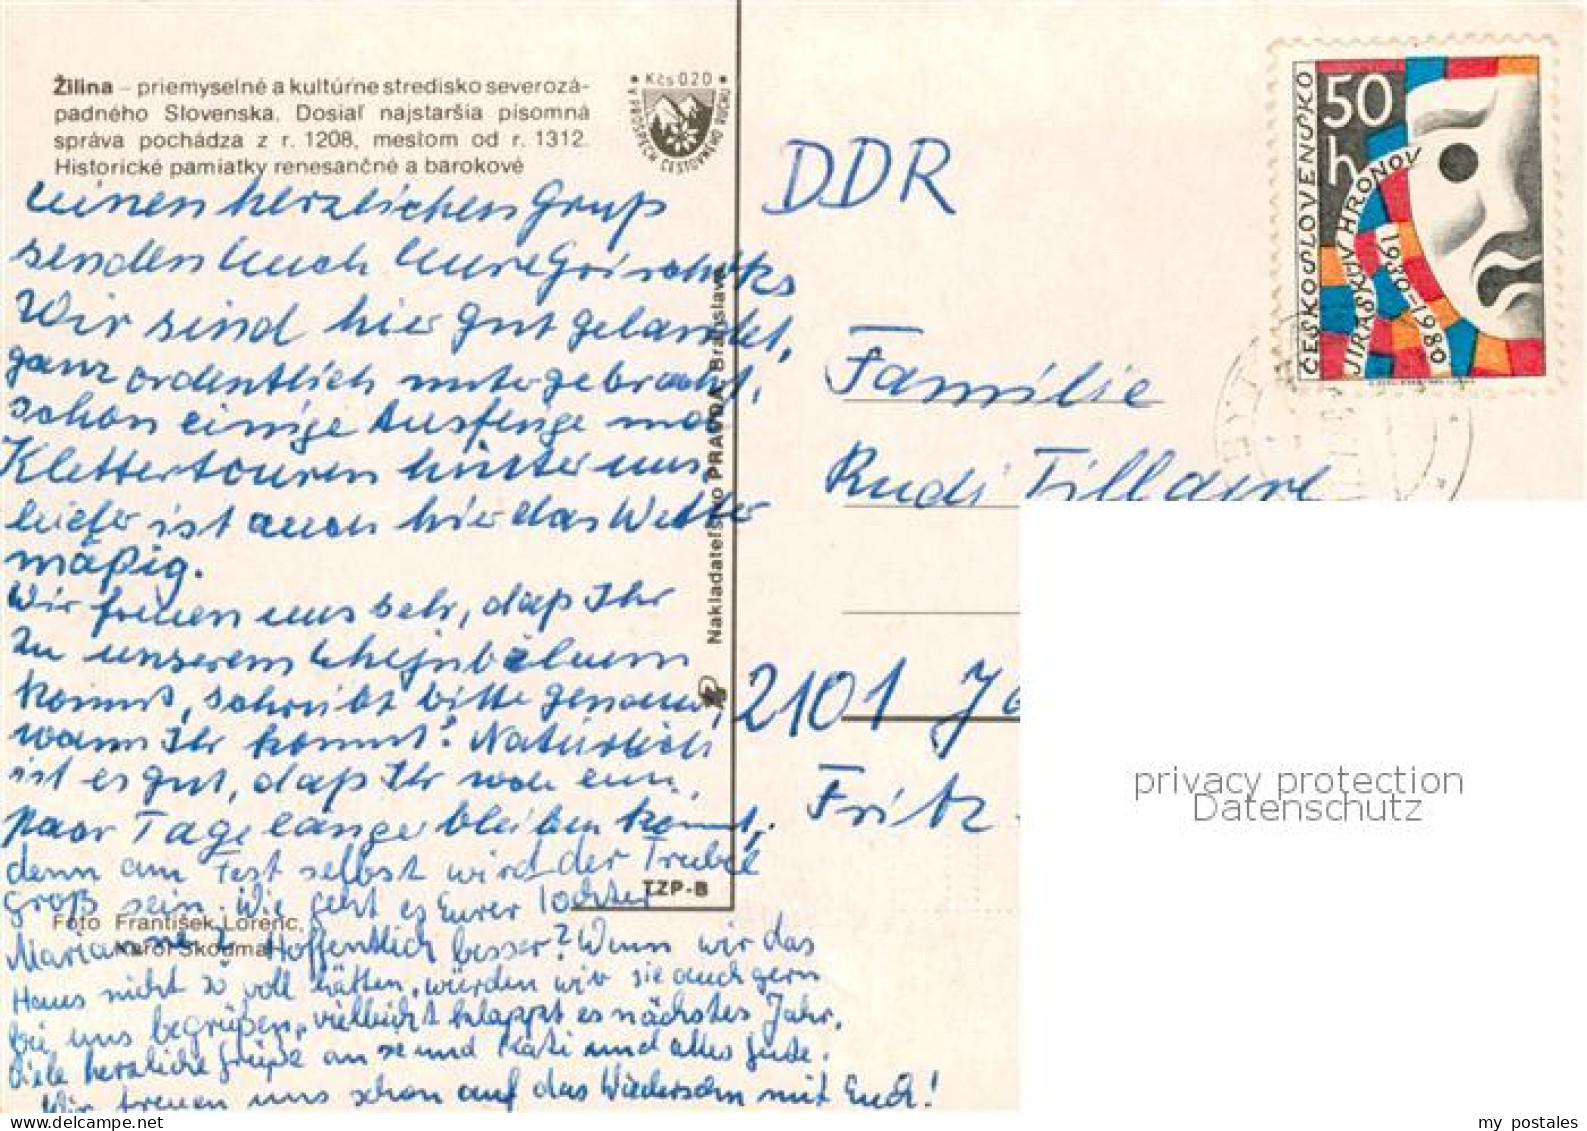 Žilina – priemyselné a kultúrne stredisko severozá-
padného Slovenska. Dosiaľ najstaršia písomná
správa pochádza z r. 1208, mestom od r. 1312.
Historické pamiatky renesančné a barokové
• Kčs 0.20 •
V PROSPECH CESTOVNÉHO RUCHU
einen herzlichen Gruß
senden Euch Eure
Wir sind hier gut gelandet,
ganz ordentlich untergebracht,
schon einige Ausflüge
Klettertouren hinter uns,
leider ist auch hier das Wetter
mäßig.
Wir freuen uns sehr, daß Ihr
zu unserem
kommt, schreibt bitte genau,
wann Ihr kommt! Natürlich
ist es gut, daß Ihr
paar Tage länger bleiben könnt,
denn am Fest selbst wird der Trubel
groß sein. Wie geht es Eurer Tochter
Marianne? Hoffentlich besser? Wenn wir das
Haus nicht so voll hätten, würden wir sie auch gern
bei uns begrüßen, vielleicht klappt es nächstes Jahr.
Viele herzliche Grüße an sie und Kati und alles Gute.
Wir freuen uns schon auf das Wiedersehn mit Euch!
Foto František Lorenc,
Karol Skoumal
Nakladateľstvo PRAVDA Bratislava
TZP-B
DDR
ČESKOSLOVENSKO
50
h
JIRÁSKŮV HRONOV
1930–1980
Familie
Rudi
2101
Fritz
privacy protection
Datenschutz
my postales